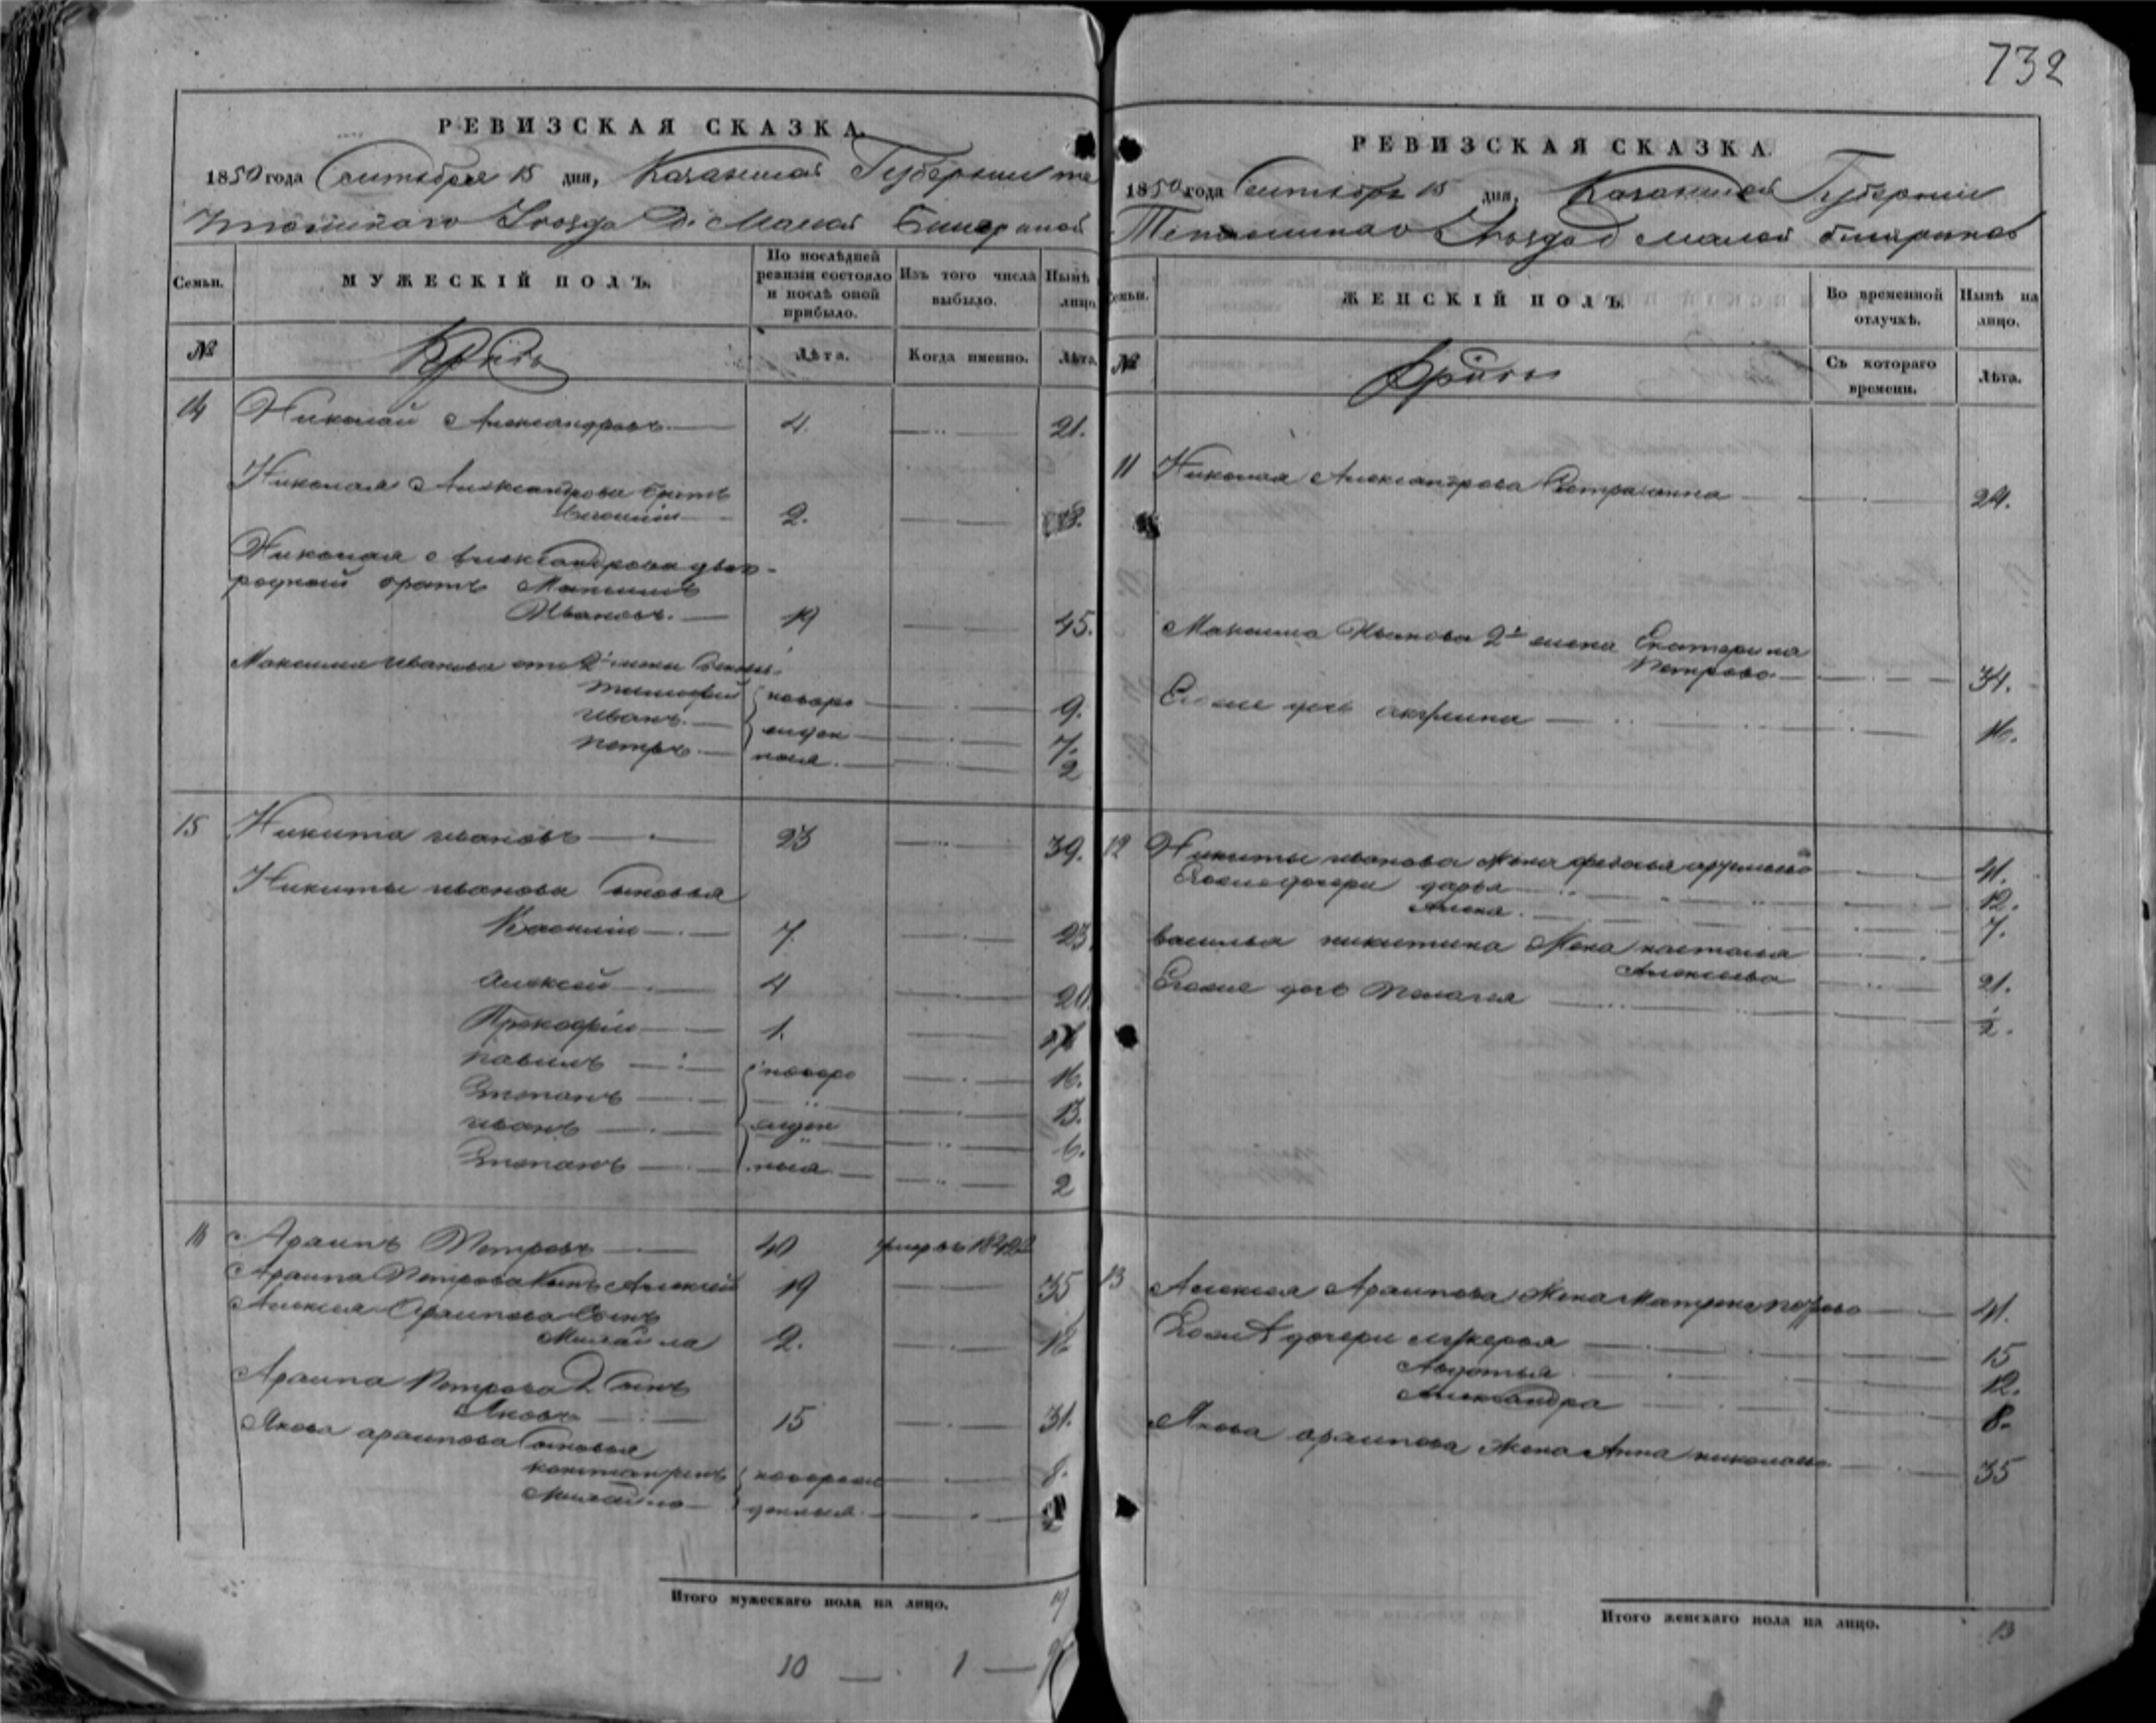 732
РЕВИЗСКАЯ СКАЗКА.
1850 года Сентября 15 дня, Казанской Губернии те
тюшскаго Уезда Д. Малой
Семьи.
МУЖЕСКІЙ ПОЛЪ.
По послѣдней ревизіи состояло и послѣ оной прибыло.
Изъ того числа выбыло.
Нынѣ лицо
№
Лѣта.
Когда именно.
Лѣта.
14 Николай Александровъ 4. 21.
Николая Александрова братъ
2.
Николая Александрова двою-
родной братъ Максимъ
Ивановъ. 19 45.
Максима Иванова отъ 2й жены
Тимофей новоро 9.
Иванъ жден 7.
Петръ ныя. 2
15 Никита Ивановъ 23 39.
Никиты Иванова сыновья
Василій 7. 23
Алексей 4 20
Прокофій 1.
Павелъ новоро 16.
Степанъ 13.
Иванъ жден 6.
Степанъ ныя 2
16 Архипъ Петровъ 40 умеръ в 184
Архипа Петрова сынъ Алексей 19 35
Алексея Архипова сынъ
Михайла 2. 18
Архипа Петрова 2 сынъ
Яковъ 15 31.
Якова Архипова сыновья
Константинъ новорож 8.
Михайло денныя
Итого мужескаго пола на лицо.
10 1
РЕВИЗСКАЯ СКАЗКА.
1850 года Сентября 15 дня, Казанской Губернии
Уезда д Малой
Семьи.
ЖЕНСКІЙ ПОЛЪ.
Во временной отлучкѣ.
Нынѣ на лицо.
№
Съ котораго времени.
Лѣта.
11 Николая Александрова Сестра Анна 24.
Максима Иванова 2я жена Екатерина
Петрова 34.
Его же дочь Акулина 16.
12 Никиты Иванова жена Федосья 41.
Его же дочери Дарья 12.
Алена 7.
Василья Никитина жена Настасья
Алексеева 21.
Его же дочь Пелагея 1/2.
13 Алексея Архипова жена Матрена 41.
Его же дочери Лукерья 15
Авдотья 12.
Александра 8.
Якова Архипова жена Анна Николаева 35
Итого женскаго пола на лицо. 13